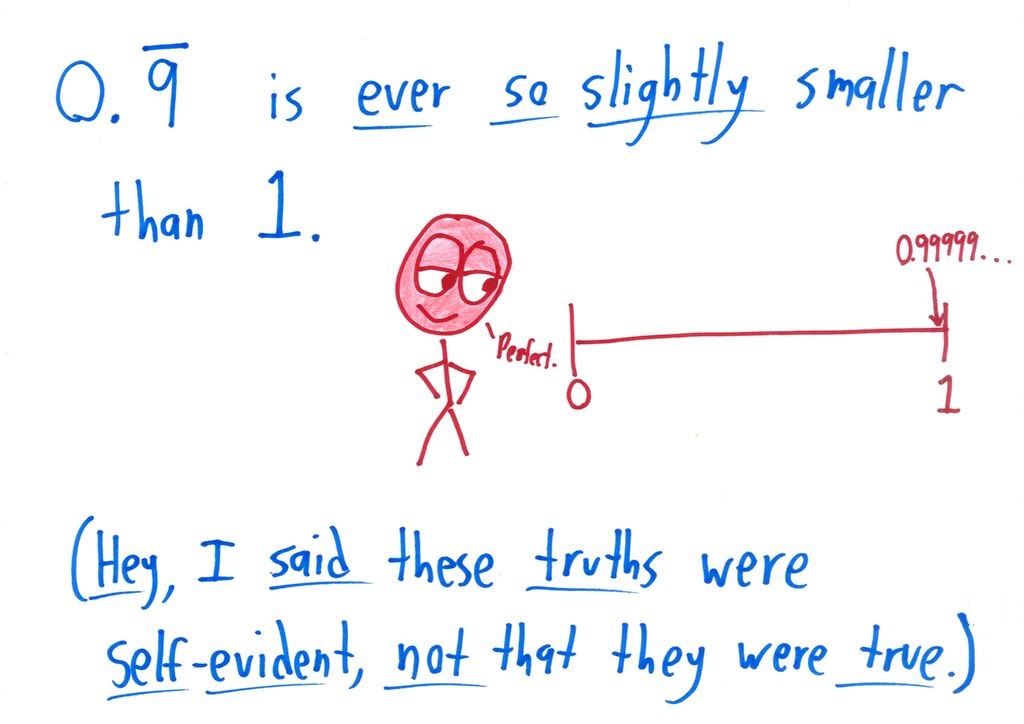 0.9̅ is ever so slightly smaller
than 1.
0.99999...
Perfect.
0
1
(Hey, I said these truths were
self-evident, not that they were true.)